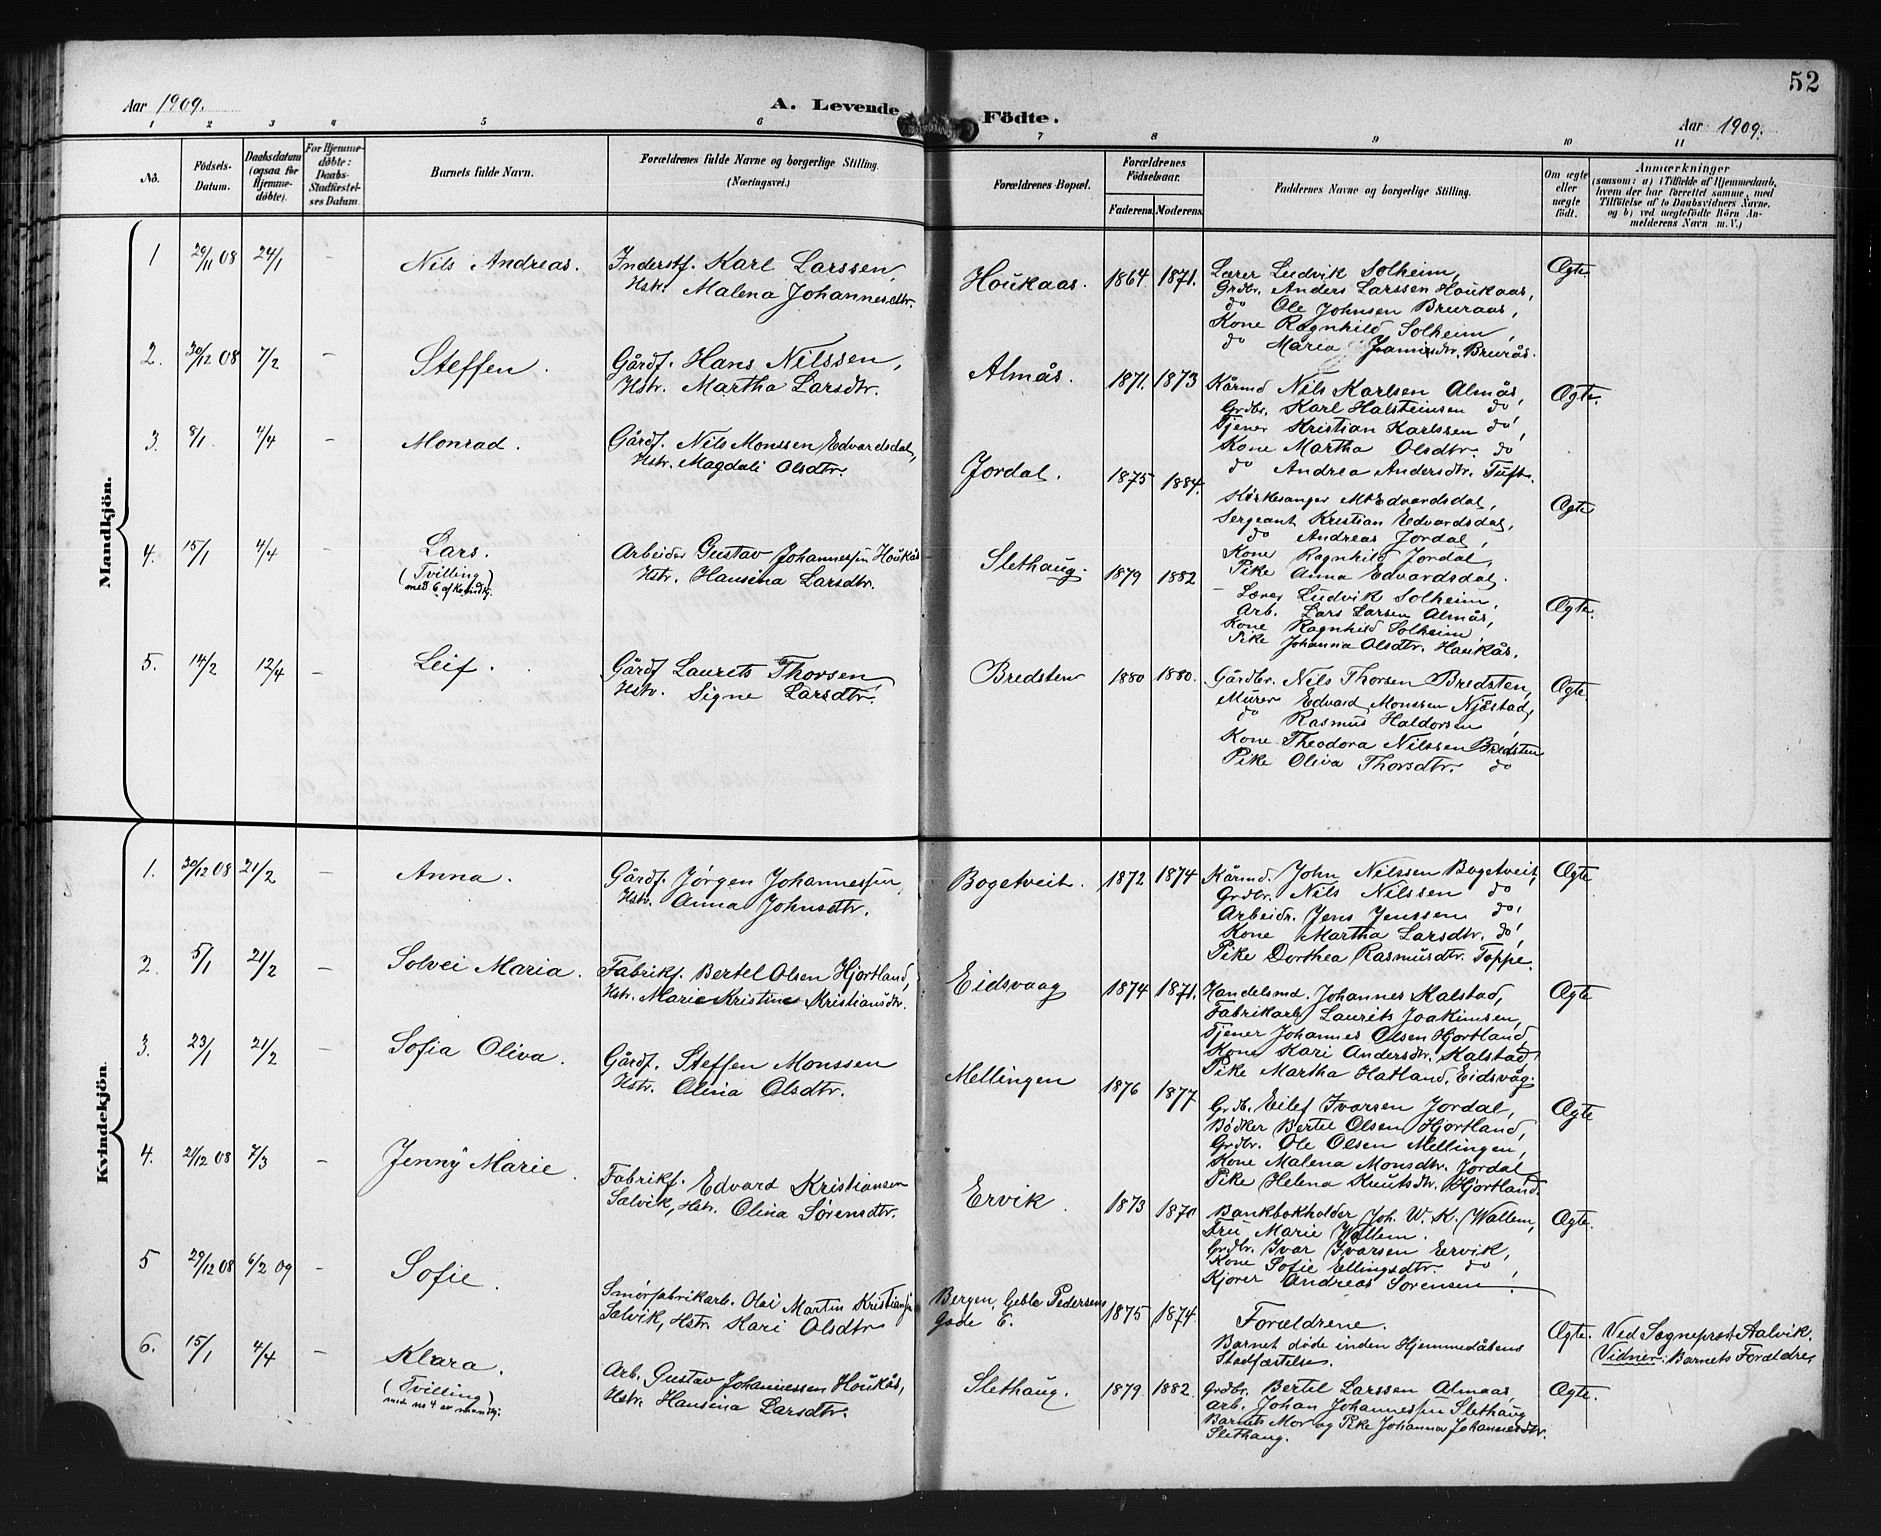 52
Aar 1909.
A. Levende Födte.
Aar 1909.
1 2 3 4 5 6 7 8 9 10 11
No.
Födsels-Datum.
Daabsdatum (ogsaa for Hjemme-döbte).
For Hjemme-döbte: Daabs-Stadfæstel-ses Datum.
Barnets fulde Navn.
Forældrenes fulde Navne og borgerlige Stilling. (Næringsvei.)
Forældrenes Bopæl.
Forældrenes Födselsaar.
Faderens. Moderens.
Faddernes Navne og borgerlige Stilling.
Om ægte eller uægte födt.
Anmærkninger
(saasom: a) i Tilfælde af Hjemmedaab,
hvem der har forrettet samme, med
Tilföielse af to Daabsvidners Navne.
og b) ved uægtefödte Börn An-
melderens Navn m. V.)
Mandkjön.
1 29/11 08 24/1 – Nils Andreas.
Inderstf. Karl Larssen,
Hstr. Malena Johannesdtr.
Houkaas. 1864 1871.
Lærer Ludvik Solheim,
Grdbr. Anders Larssen Houkaas,
do Ole Johnsen Bruraas,
Kone Ragnhild Solheim,
do Maria Brurås.
Ægte
2. 30/12 08 7/2 – Steffen.
Gårdf. Hans Nilssen,
Hstr. Martha Larsdtr.
Almås. 1871. 1873
Kårmd Nils Karlsen Almås,
Grdbr. Karl Halsteinsen do,
Tjener Kristian Karlssen do,
Kone Martha Olsdtr. do
do Andrea Andersdtr. Tuft.
Ægte.
3. 8/1 4/4 – Monrad.
Gårdf. Nils Monssen Edvardsdal,
Hstr. Magdali Olsdtr.
Jordal. 1875 1884.
Kirkesanger M. Edvardsdal,
Sergeant Kristian Edvardsdal,
do Andreas Jordal,
Kone Ragnhild Jordal,
Pike Anna Edvardsdal.
Ægte
4. 15/1 4/4 – Lars.
(Tvilling)
med 6 af kvindkj.
Arbeider Gustav Johannessen Houkås
Hstr. Hansina Larsdtr.
Slethaug. 1879 1882
Lærer Ludvik Solheim,
Arb. Lars Larsen Almås,
Kone Ragnhild Solheim,
Pike Johanna Olsdtr. Haukås.
Ægte.
5. 14/2 12/4 – Leif.
Gårdf Laurits Thorsen
Hstr. Signe Larsdtr.
Bredsten 1880 1880.
Gårdbr. Nils Thorsen Bredsten,
Murer Edvard Monssen Njøstad,
do Rasmus Haldorsen,
Kone Theodora Nilssen Bredsten
Pike Oliva Thorsdtr. do
Ægte.
Kvindekjön.
1. 30/12 08 21/2 – Anna.
Gårdf. Jørgen Johannessen
Hstr. Anna Johnsdtr.
Bogetveit. 1872 1874
Kårmd. John Nilssen Bogetveit,
Grdbr. Nils Nilssen do
Arbeidr. Jens Jenssen do,
Kone Martha Larsdtr. do,
Pike Dorthea Rasmusdtr. Toppe.
Ægte
2. 5/1 21/2 – Solvei Maria.
Fabrikf. Bertel Olsen Hjortland,
Hstr. Marie Kristine Kristiansdtr.
Eidsvaag 1874 1871.
Handelsmd. Johannes Kalstad,
Fabrikarb Laurits Joakimsen,
Tjener Johannes Olsen Hjortland,
Kone Kari Andersdtr. Kalstad,
Pike Martha Hatland, Eidsvåg.
Ægte
3. 23/1 21/2 – Sofia Oliva.
Gårdf. Steffen Monssen
Hstr. Olina Olsdtr.
Mellingen 1876 1877
Grdb. Eilef Ivarsen Jordal,
Bødker Bertel Olsen Hjortland,
Grdbr. Ole Olsen Mellingen,
Kone Malena Monsdtr. Jordal
Pike Helena Knutsdtr. Hjortland.
Ægte
4. 21/12 08 7/3 – Jenny Marie.
Fabrikf. Edvard Kristiansen
Salvik, Hstr. Olina Sørensdtr.
Ervik. 1873 1870
Bankbokholder Joh. W. K. Wallem,
Fru Marie Wallem.
Grdbr. Ivar Ivarsen Ervik,
Kone Sofie Ellingsdtr. do,
Kjører Andreas Sørensen
Ægte.
5 29/12 08 6/2 09 – Sofie.
Smørfabrikarb. Olai Martin Kristiansen
Salvik, Hstr. Kari Olsdtr
Bergen, Geble Pedersens
gade 6. 1875 1874.
Forældrene.
Barnet døde inden Hjemmedåbens
Stadfæstelse.
Ægte.
Ved Sogneprest Aalvik.
Vidner: Barnets Forældre,
6. 15/1 4/4 – Klara.
(Tvilling)
med no 4 av mandkj.
Arb. Gustav Johannessen Houkås,
Hstr. Hansina Larsdtr.
Slethaug. 1879. 1882.
Grdbr. Bertel Larssen Almaas,
arb. Johan Johannessen Slethaug
Barnets Mor og Pike Johanna Johannesdtr.
Slethaug.
Ægte.